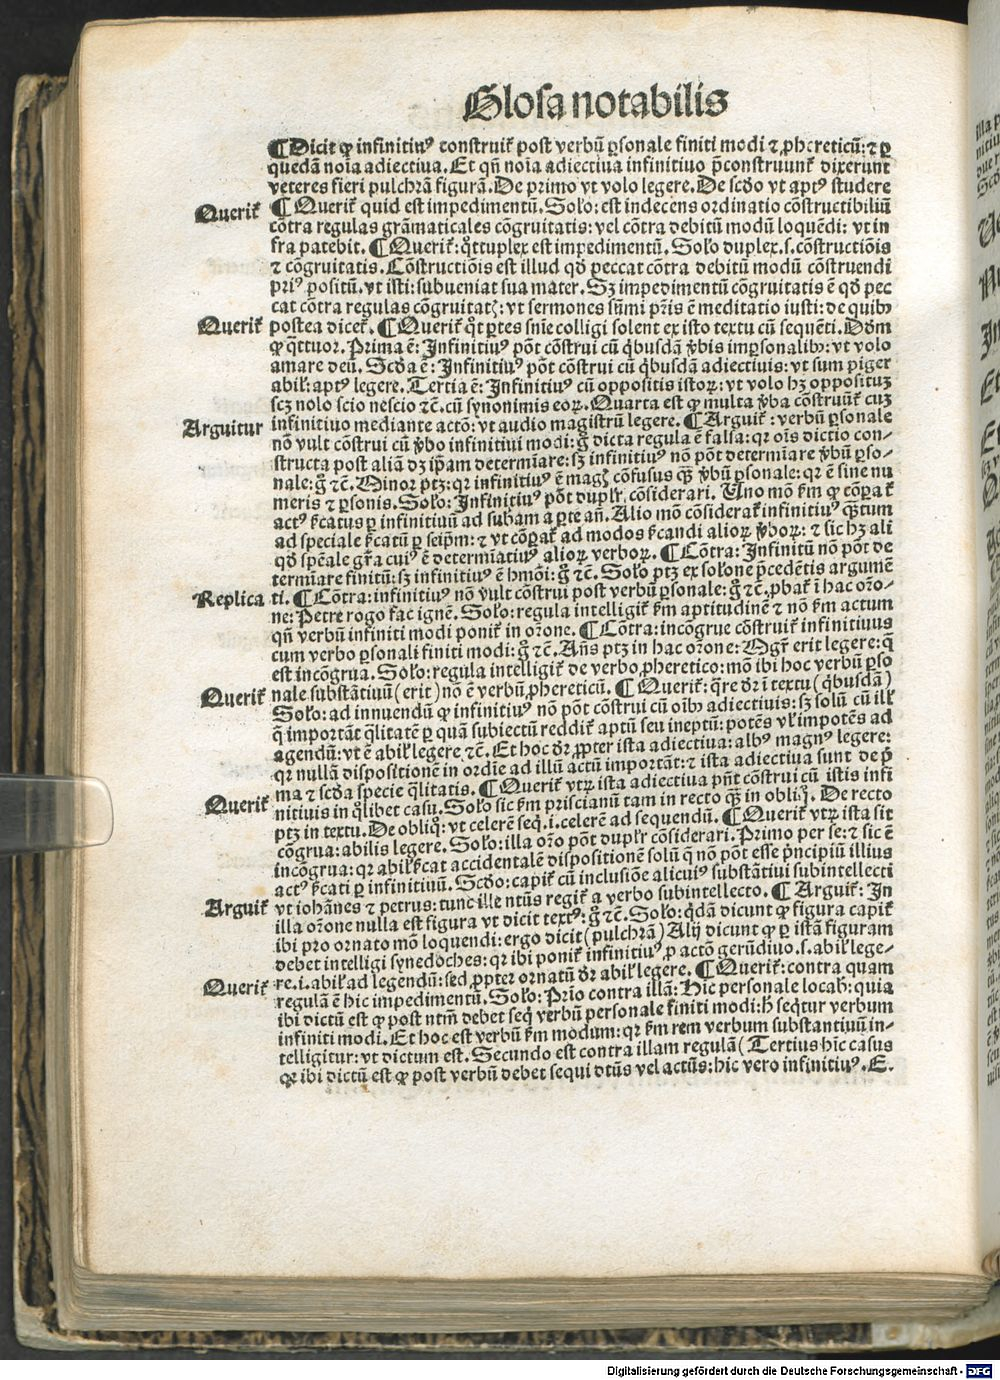 Glosa notabilis
¶ Dicit ꝙ infinitiuꝰ construit᷑ post verbū ꝑsonale finiti modi ⁊ ꝓhereticū: ⁊ ꝑ
quedā noīa adiectiua. Et qn̄ noīa adiectiua infinitiuo p̄construunt᷑ dixerunt
veteres fieri pulchrā figurā. De primo vt volo legere. De scḋo vt aptꝰ studere
Querit᷑
¶ Querit᷑ quid est impedimentū. Soło: est indecens ordinatio cōstructibiliū
cōtra regulas grāmaticales cōgruitatis: vel cōtra debitū modū loquēdi: vt in
fra patebit. ¶ Querit᷑: q̊ttuplex est impedimentū. Soło duplex. s. cōstructiōis
⁊ cōgruitatis. Cōstructiōis est illud qḋ peccat cōtra debitū modū cōstruendi
priꝰ positū. vt isti: subueniat sua mater. Sꝫ impedimentū cōgruitatis ē qḋ pec
cat cōtra regulas cōgruitatꝭ: vt sermones sūmi pr̄is ē meditatio iusti: de quibꝰ
Querit᷑
postea dicet᷑. ¶ Querit᷑ q̊t ꝑtes snīe colligi solent ex isto textu cū sequēti. Dḋm
ꝙ q̄ttuor. Prima ē: Infinitiuꝰ pōt cōstrui cū q̇busdā v̄bis imꝑsonalibꝰ: vt volo
amare deū. Scḋa ē: Infinitiuꝰ pōt cōstrui cū q̇busdā adiectiuis: vt sum piger
abił: aptꝰ legere. Tertia ē: Infinitiuꝰ cū oppositis istoꝝ: vt volo hꝫ opposituꝫ
scꝫ nolo scio nescio ⁊c̄. cū synonimis eoꝝ. Quarta est ꝙ multa v̄ba cōstruūt᷑ cuꝫ
Arguitur
infinitiuo mediante actō: vt audio magistrū legere. ¶ Arguit᷑: verbū ꝑsonale
nō vult cōstrui cū v̄bo infinitiui modi: g̊ dicta regula ē falsa: qꝛ oīs dictio con-
structa post aliā dꝫ ip̄am determīare: sꝫ infinitiuꝰ nō pōt determīare v̄bū ꝑso-
nale: g̊ ⁊c̄. Minor ptꝫ: qꝛ infinitiuꝰ ē magꝭ cōfusus qꝫ̄ v̄bū ꝑsonale: qꝛ ē sine nu
meris ⁊ ꝑsonis. Soło: Infinitiuꝰ pōt dupłr cōsiderari. Uno mō ẜm ꝙ cōꝑat᷑
actꝰ ẜcatus ꝑ infinitiuū ad subām a ꝑte añ. Alio mō cōsiderat᷑ infinitiuꝰ qꝫ̄tum
ad speciale ẜcatū ꝑ seip̄m: ⁊ vt cōꝑat᷑ ad modos ẜcandi alioꝝ v̄boꝝ: ⁊ sic hꝫ ali
qḋ spēale gr̄a cuiꝰ ē determīatiuꝰ alioꝝ verboꝝ. ¶ Cōtra: Infinitū nō pōt de
termīare finitū: sꝫ infinitiuꝰ ē hmōi: g̊ ⁊c̄. Soło ptꝫ ex sołone p̄cedētis argumē
Replica
ti. ¶ Cōtra: infinitiuꝰ nō vult cōstrui post verbū ꝑsonale: g̊ ⁊c̄. ꝓbat᷑ ī hac or̄o-
ne: Petre rogo fac ignē. Soło: regula intelligit᷑ ẜm aptitudinē ⁊ nō ẜm actum
qn̄ verbū infiniti modi ponit᷑ in or̄one. ¶ Cōtra: incōgrue cōstruit᷑ infinitiuus
cum verbo ꝑsonali finiti modi: g̊ ⁊c̄. Añs ptꝫ in hac or̄one: Mgr̄ erit legere: q̄
est incōgrua. Soło: regula intelligit᷑ de verbo ꝓheretico: mō ibi hoc verbū ꝑso
Querit᷑
nale substātiuū (erit) nō ē verbū ꝓhereticū. ¶ Querit᷑: q̄re dr̄ ī textu (q̇busdā)
Soło: ad innuendū ꝙ infinitiuꝰ nō pōt cōstrui cū oībꝰ adiectiuis: sꝫ solū cū ill᷑
q̄ importāt q̄litatē ꝑ quā subiectū reddit᷑ aptū seu ineptū: potēs vł impotēs ad
agendū: vt ē abił legere ⁊c̄. Et hoc dr̄ ꝓpter ista adiectiua: albꝰ magnꝰ legere:
qꝛ nullā dispositionē in ordīe ad illū actū importāt: ⁊ ista adiectiua sunt de p̄
ma ⁊ scḋa specie q̄litatis. ¶ Querit᷑ vtꝝ ista adiectiua pn̄t cōstrui cū istis infi
Querit᷑
nitiuis in q̊libet casu. Soło sic ẜm priscianū tam in recto qꝫ̄ in obliq̊. De recto
ptꝫ in textu. De obliq̊: vt celerē seq̇. i. celerē ad sequendū. ¶ Querit᷑ vtꝝ ista sit
cōgrua: abilis legere. Soło: illa or̄o pōt dupłr cōsiderari. Primo per se: ⁊ sic ē
incōgrua: qꝛ abił ẜcat accidentalē dispositionē solū q̄ nō pōt esse p̄ncipiū illius
actꝰ ẜcati ꝑ infinitiuū. Scḋo: capit᷑ cū inclusiōe alicuiꝰ substātiui subintellecti
Arguit᷑
vt iohānes ⁊ petrus: tunc ille ntūs regit᷑ a verbo subintellecto. ¶ Arguit᷑: In
illa or̄one nulla est figura vt dicit textꝰ: g̊ ⁊c̄. Soło: q̇dā dicunt ꝙ figura capit᷑
ibi pro ornato mō loquendi: ergo dicit (pulchrā) Alij dicunt ꝙ ꝑ istā figuram
debet intelligi synedoches: qꝛ ibi ponit᷑ infinitiuꝰ ꝓ actō gerūdiuo. s. abił lege-
Querit᷑
re. i. abił ad legendū: sed ꝓpter ornatū dr̄ abił legere. ¶ Querit᷑: contra quam
regulā ē hic impedimentū. Soło: Prīo contra illā: Hic personale locab: quia
ibi dictū est ꝙ post ntm̄ debet seq̇ verbū personale finiti modi: h̄ seq̇tur verbum
infiniti modi. Et hoc est verbū ẜm modum: qꝛ ẜm rem verbum substantiuū in-
telligitur: vt dictum est. Secundo est contra illam regulā (Tertius hīc casus
qꝛ ibi dictū est ꝙ post verbū debet sequi dtūs vel actūs: hic vero infinitiuꝰ. E.
Digitalisierung gefördert durch die Deutsche Forschungsgemeinschaft - DFG